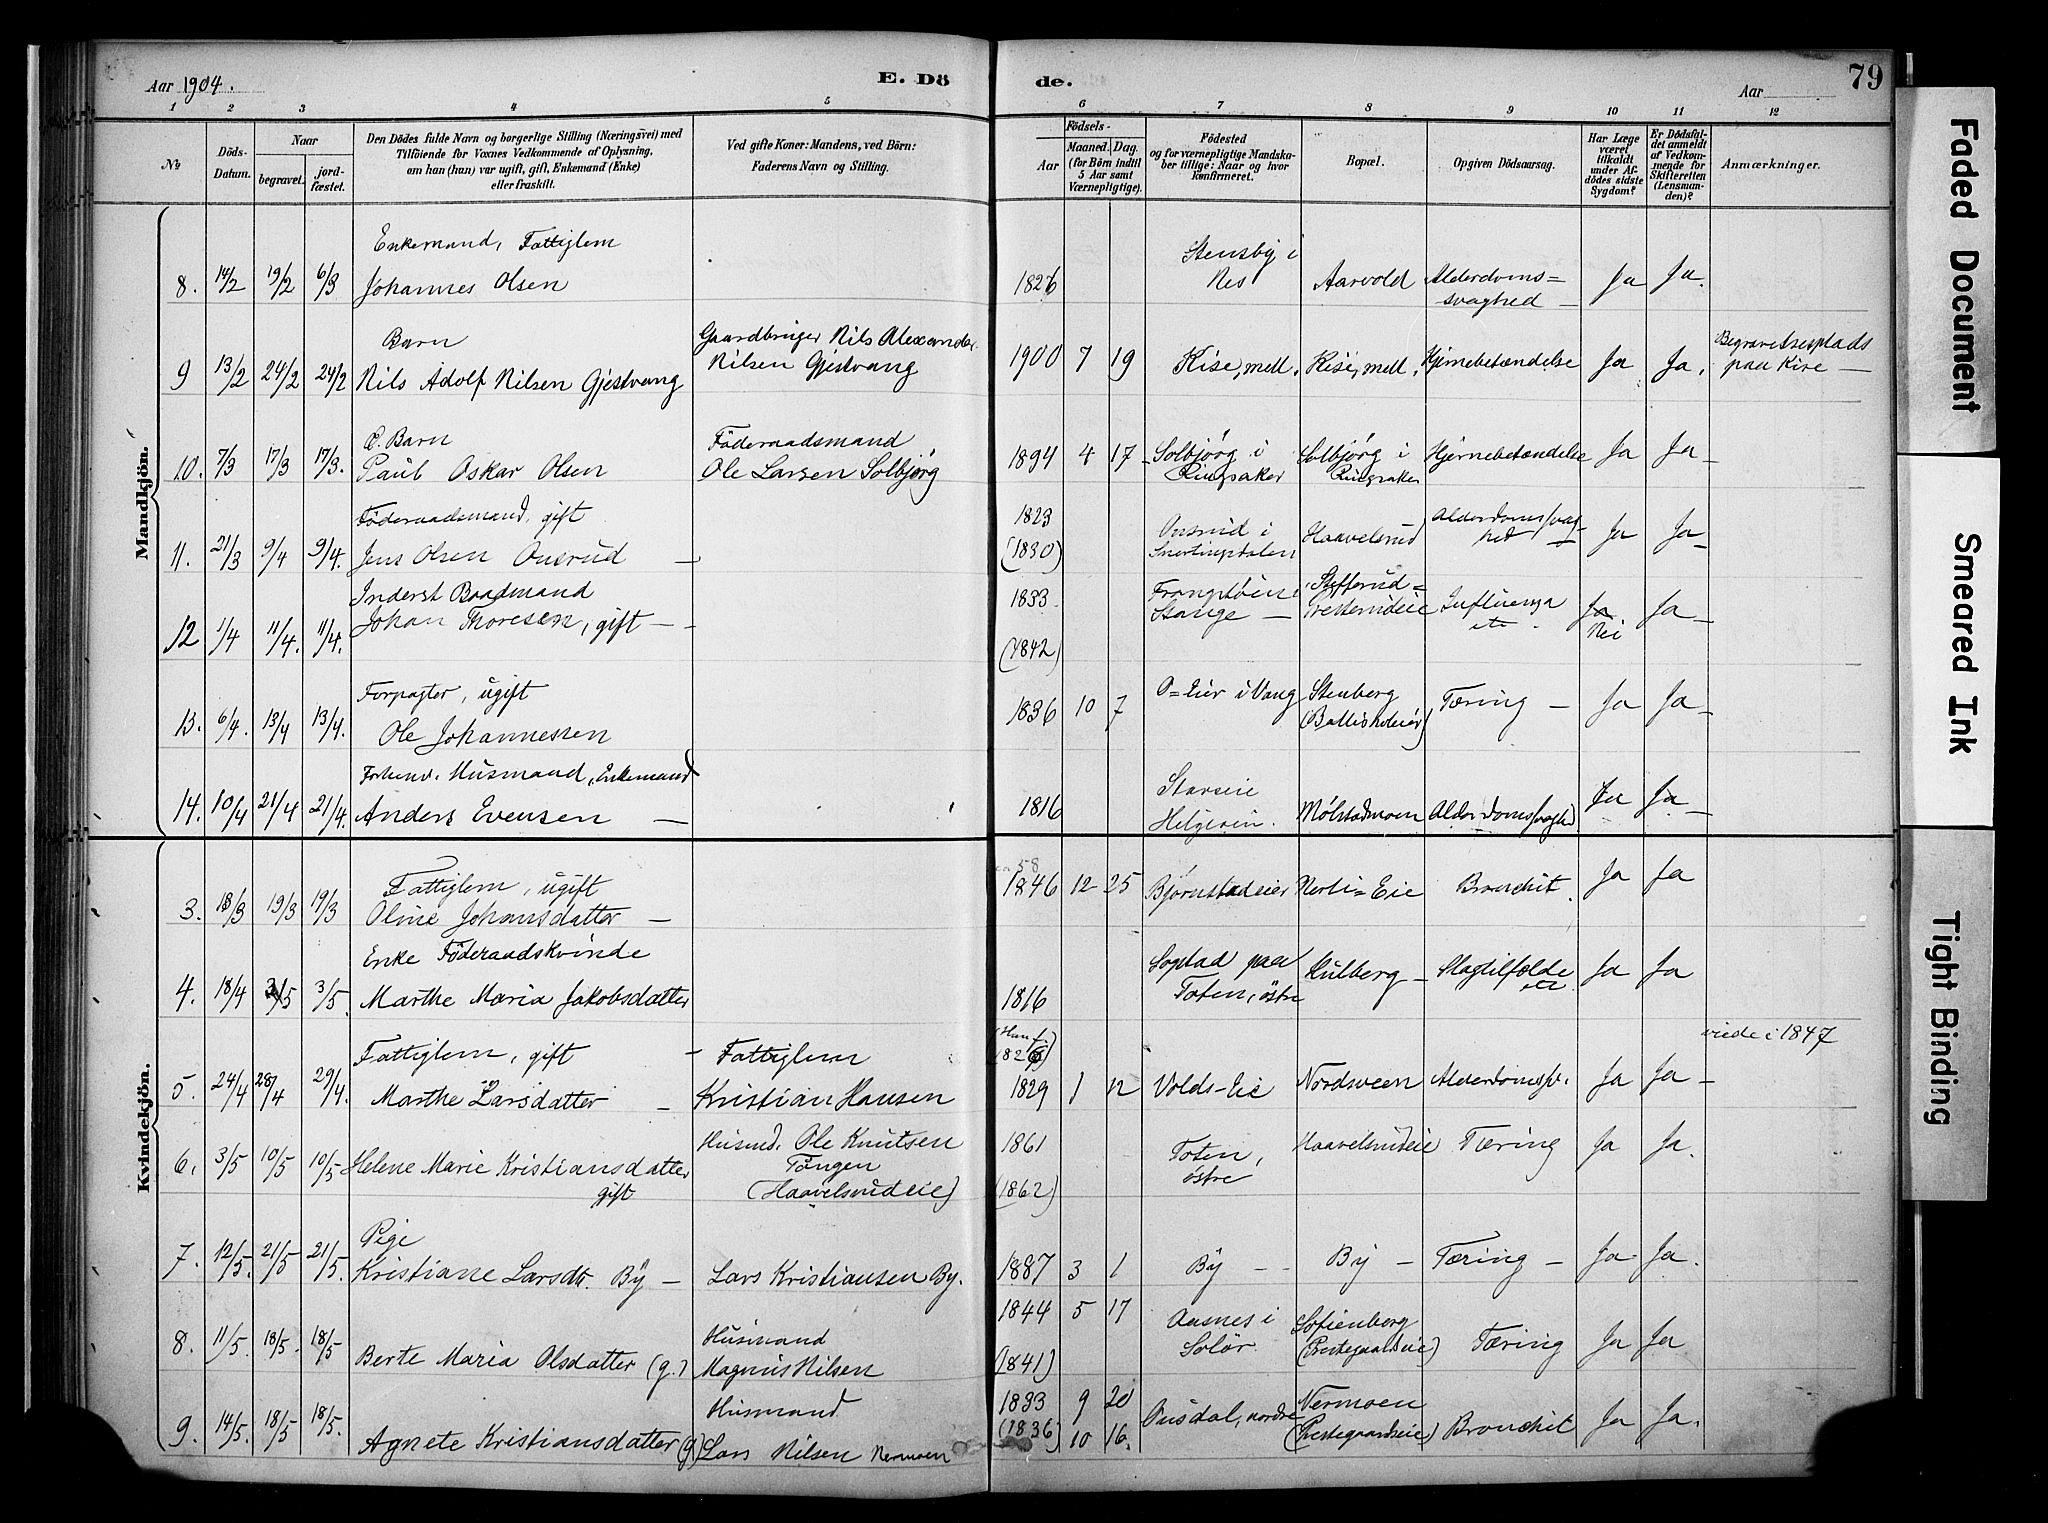 Aar 1904. E. Dö de. Aar 79
1 2 3 4 5 6 7 8 9 10 11 12
No
Döds-Datum.
Naar
begravet.
jord-fæstet.
Den Dödes fulde Navn og borgerlige Stilling (Næringsvei) med
Tilföiende for Voxnes Vedkommende af Oplysning,
om han (hun) var ugift, gift, Enkemand (Enke)
eller fraskilt.
Ved gifte Koner: Mandens, ved Börn:
Faderens Navn og Stilling.
Födsels-
Aar
Maaned. Dag.
(for Börn indtil
5 Aar samt
Værnepligtige).
Födested
og for værnepligtige Mandska-
ber tillige: Naar og hvor
konfirmeret.
Bopæl.
Opgiven Dödsaarsag.
Har Læge
været
tilkaldt
under Af-
dödes sidste
Sygdom?
Er Dödsfal-
det anmeldt
af Vedkom-
mende for
Skifteretten
(Lensman-
den)?
Anmærkninger.
Mandkjön.
Enkemand, Fattiglem Stensby i
8. 14/2 19/2 6/3 Johannes Olsen 1826 Nes Aarvold Alderdoms=
svaghed — Ja Ja.
Barn Gaardbruger Nils Alexander
9 13/2 24/2 24/2 Nils Adolf Nilsen Gjestvang Nilsen Gjestvang 1900 7 19 Kise, mell. Kise, mell. Hjernebetændelse Ja Ja. Begravelsesplads
paa Kise —
Barn Föderaadsmand
10. 7/3 17/3 17/3. Paul Oskar Olsen Ole Larsen Solbjørg 1894 4 17 Solbjørg i Solbjørg i Hjernebetændelse Ja Ja
Ringsaker Ringsaker
Föderaadsmand, gift 1823
11. 21/3 9/4 9/4. Jens Olsen Onsrud — (1830) Onsrud i
Snertingdalen Haavelsrud Ja Ja
Inderst Baadmand 1833
12 1/4 11/4. 11/4. Johan Thoresen, gift (1842) Stange — Influenza
etc. Ja Nei Ja
Forpagter, ugift
13. 6/4. 13/4 13/4. Ole Johannessen 1836 10 7 O=Eier i Vang Stenberg Tæring — Ja Ja
Husmand, Enkemand
14. 10/4 21/4 21/4. Anders Evensen — 1816 Mølstadmoen Ja Ja
Kvindekjön.
Fattiglem, ugift 58
3. 18/3 19/3 19/3 Oline Johansdatter — 1846 12 25 Bjørnstadeier Bronchit. Ja Ja
Enke Föderaadskvinde
4. 18/4 3/5 3/5. Marthe Maria Jakobsdatter 1816 Toten, østre Hulberg Slagtilfælde
etc Ja Ja
Fattiglem, gift Fattiglem viede i 1847
5. 24/4 28/4 29/4. Marthe Larsdatter — Kristian Hansen 1829 1 12 Volds-Eie Nordsveen Alderdomssv. Ja Ja
Husmd. Ole Knutsen 1861
6. 3/5 10/5 10/5 Helene Marie Kristiansdatter Tøngen Toten, Haavelsrudeie Tæring Ja Ja.
gift (Haavelsrudeie) (1862) østre
Pige
7. 12/5. 21/5 21/5. Kristiane Larsdt. By — Lars Kristiansen By. 1887 3 1 By — By — Tæring — Ja Ja.
1844 5 17 Aasnes i Sofienberg
8. 11/5. 18/5. 18/5 Husmand
Berte Maria Olsdatter (g.) Magnus Nilsen (1841) Solør (Prestegaardseie) Tæring Ja Ja
Husmand 1833 9 20 Nermoen
9. 14/5. 18/5 18/5. Agnete Kristiansdatter (g) Lars Nilsen Nermoen (1836) 10 16. Onsdal, nordre (Prestegaardseie) Bronchit Ja Ja.
Faded Document
Smeared Ink
Tight Binding